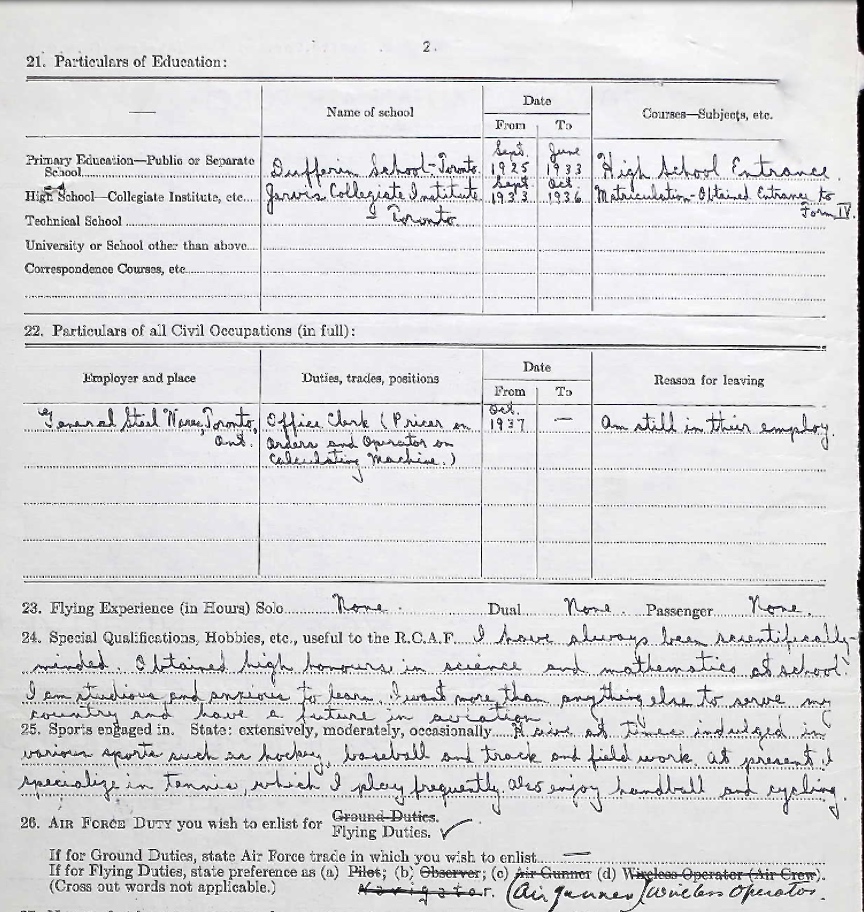 2.
21. Particulars of Education:
— Name of school Date From To Courses—Subjects, etc.
Primary Education—Public or Separate School Dufferin School - Toronto. Sept. 1925 June 1933 High School Entrance.
High School—Collegiate Institute, etc. Jarvis Collegiate Institute Sept 1933 Oct. 1936 Matriculation - Obtained Entrance to
Technical School Toronto Form IV.
University or School other than above
Correspondence Courses, etc
22. Particulars of all Civil Occupations (in full):
Employer and place Duties, trades, positions Date From To Reason for leaving
General Steel Wares, Toronto, Office Clerk (Pricer on Oct. 1937 — Am still in their employ.
Ont. orders and Operator on
Calculating Machine.)
23. Flying Experience (in Hours) Solo None. Dual None. Passenger None.
24. Special Qualifications, Hobbies, etc., useful to the R.C.A.F. I have always been scientifically-
minded. Obtained high honours in science and mathematics at school.
I am studious and anxious to learn. I want more than anything else to serve my
country and have a future in aviation
25. Sports engaged in. State: extensively, moderately, occasionally. I have at times indulged in
various sports such as hockey, baseball and track and field work. At present I
specialize in tennis, which I play frequently. Also enjoy handball and cycling.
26. AIR FORCE DUTY you wish to enlist for Ground Duties.
Flying Duties. ✓
If for Ground Duties, state Air Force trade in which you wish to enlist —
If for Flying Duties, state preference as (a) Pilot; (b) Observer; (c) Air Gunner (d) Wireless Operator (Air Crew).
(Cross out words not applicable.) Navigator. (Air gunner) Wireless Operator.